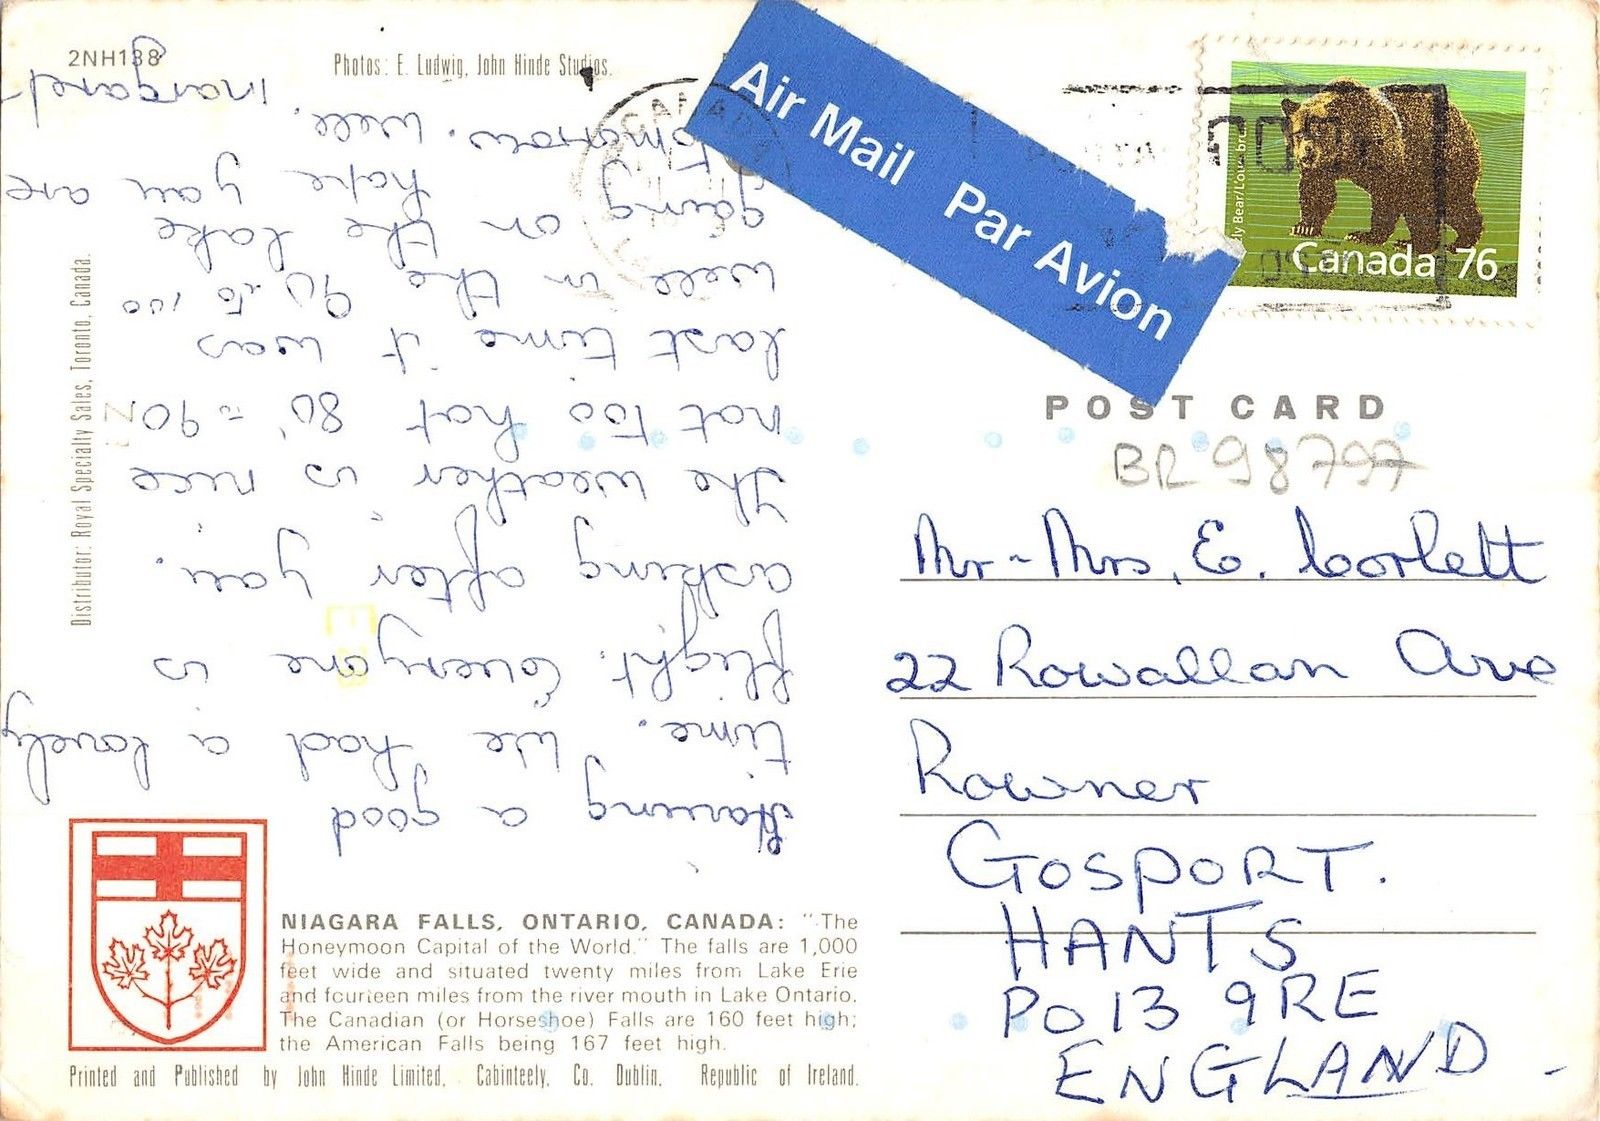 2NH138
Photos: E. Ludwig, John Hinde Studios.
Air Mail Par Avion
CANADA
Canada 76
POST CARD
BR 98797
Mr - Mrs, E. Corlett
22 Rowallan Ave
Rowner
GOSPORT.
HANTS
PO13 9RE
ENGLAND
Having a good
time. We had a lovely
flight. Everyone is
asking after you.
The weather is nice
not too hot 80 - 90
last time it was
well in the 90 to 100
going on the lake
tomarow. hope you are
well.
margaret
Distributor: Royal Specialty Sales, Toronto, Canada.
NIAGARA FALLS, ONTARIO, CANADA: "The
Honeymoon Capital of the World." The falls are 1,000
feet wide and situated twenty miles from Lake Erie
and fourteen miles from the river mouth in Lake Ontario.
The Canadian (or Horseshoe) Falls are 160 feet high;
the American Falls being 167 feet high.
Printed and Published by John Hinde Limited, Cabinteely, Co. Dublin, Republic of Ireland.